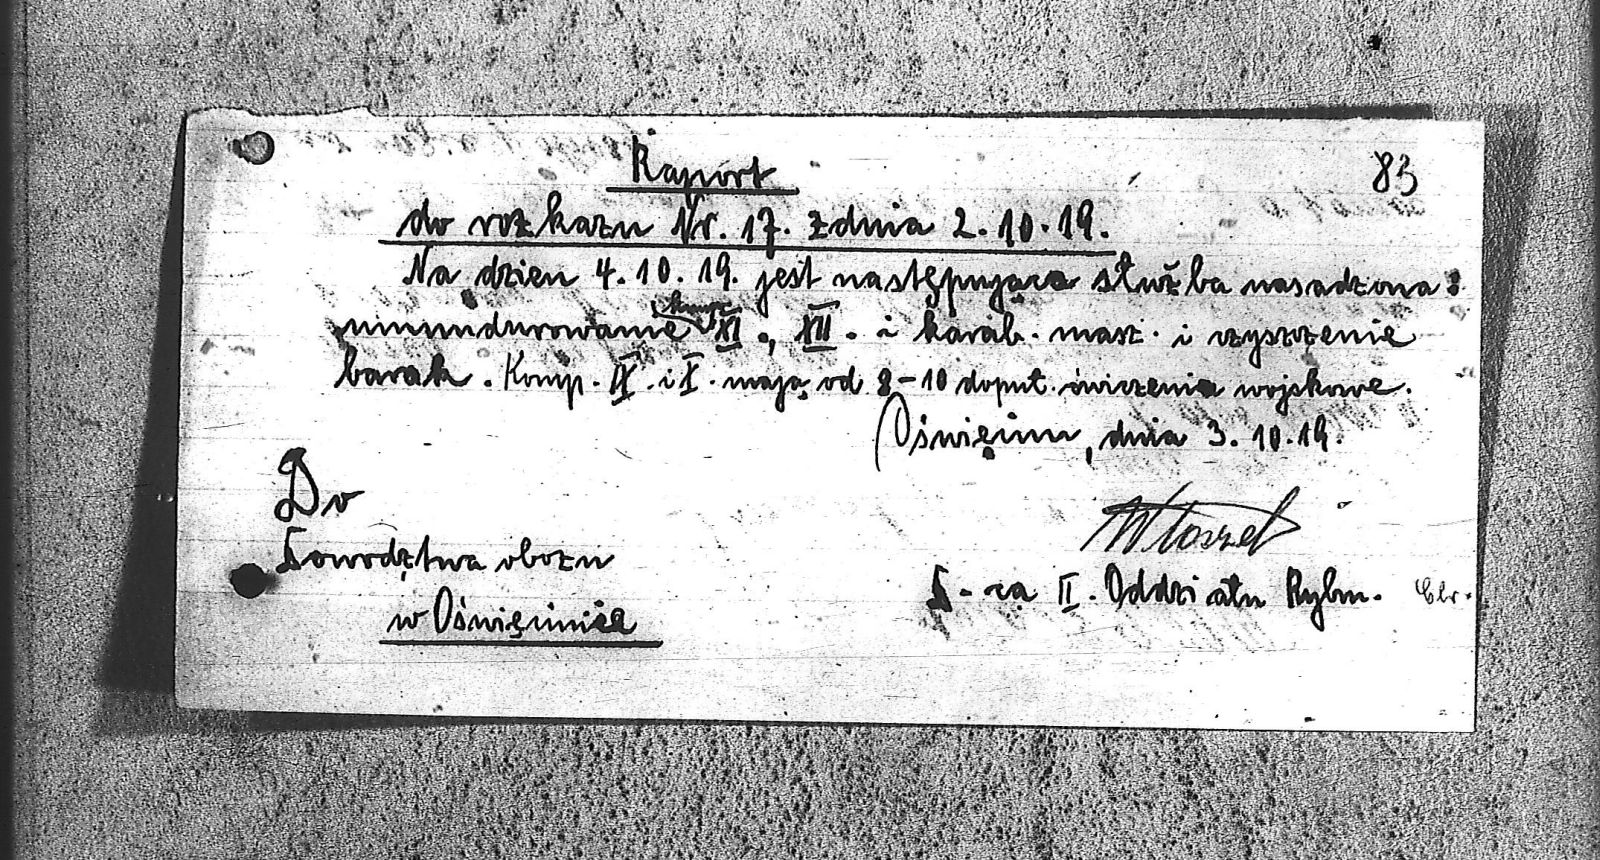 83
Raport
do rozkazu Nr. 17. z dnia 2.10.19.
Na dzien 4.10.19. jest następująca służba nasadzona:
komp.
umundurowanie XI., XII. i karab. masz. i czyszczenie
barak. Komp. IX. i X. mają od 8-10 doput. ćwiczenia wojskowe.
Oświęcim, dnia 3.10.19.
Do
Dowództwa obozu
w Oświęcimie
D-ca II. Oddziału Rybn.